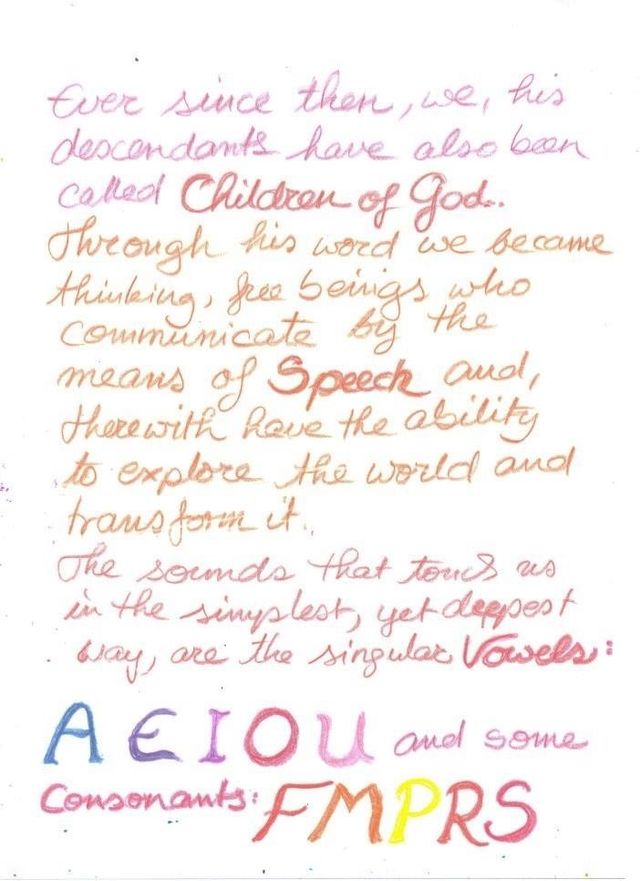 Ever since then, we, his
descendants have also been
called Children of God.
Through his word we became
thinking, free beings who
communicate by the
means of Speech and,
therewith have the ability
to explore the world and
transform it.
The sounds that touch us
in the simplest, yet deepest
way, are the singular Vowels:
A E I O U and some
Consonants: F M P R S